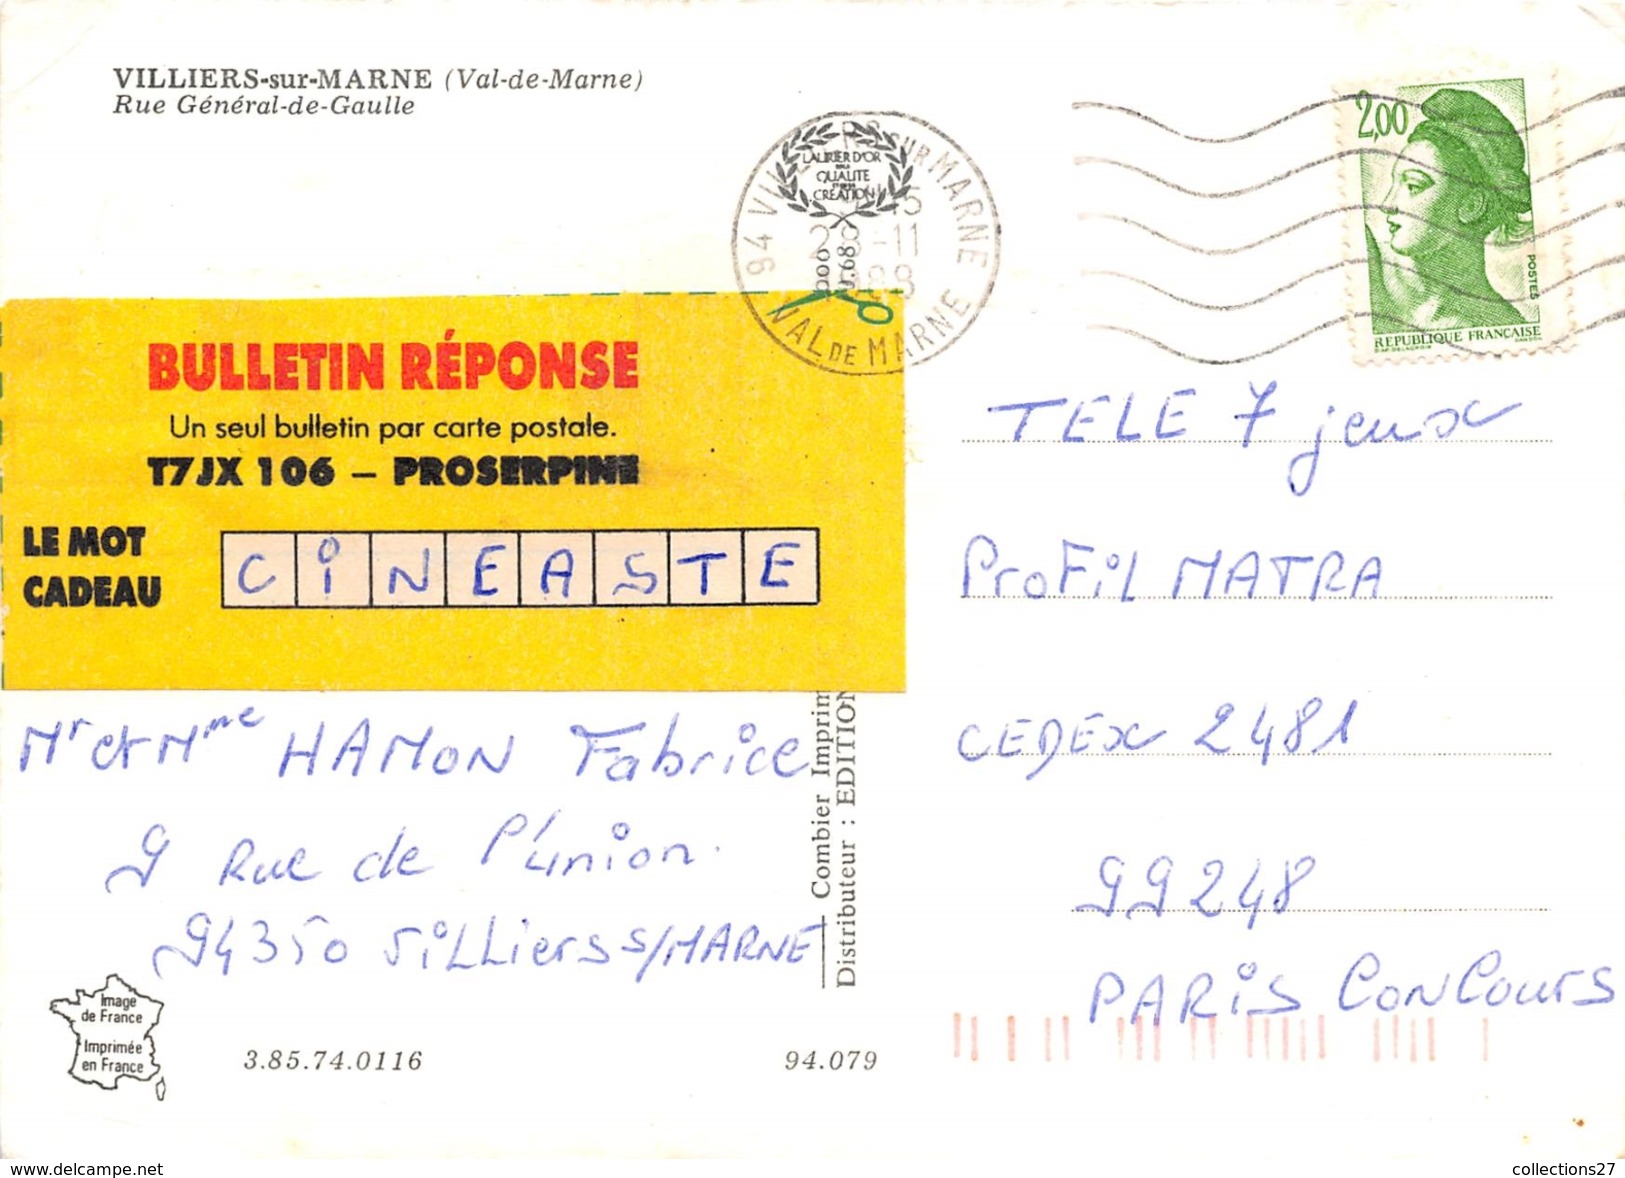 VILLIERS-sur-MARNE (Val-de-Marne)
Rue Général-de-Gaulle
LAURIER D'OR
QUALITE
CREATION
94 SUR MARNE
15
-11
VAL DE MARNE
2,00
POSTES
REPUBLIQUE FRANÇAISE
BULLETIN RÉPONSE
Un seul bulletin par carte postale.
T7JX 106 – PROSERPINE
LE MOT
CADEAU
CiNEASTE
Mr et Mme HAMON Fabrice
9 Rue de l'union
94350 villiers s/MARNE
TELE 7 jeux
ProFiL MATRA
CEDEX 2481
99248
PARiS CONCOURS
Combier Imprim
Distributeur : EDITION
Image
de France
Imprimée
en France
3.85.74.0116
94.079
www.delcampe.net
collections27